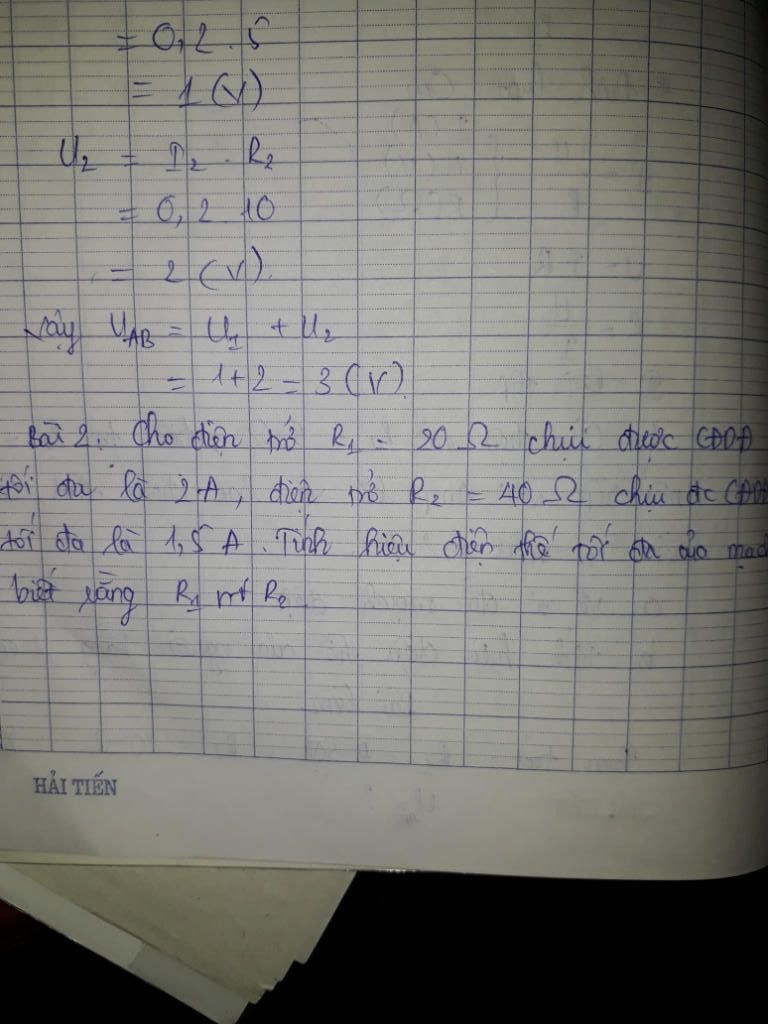 = 0,2 . 5
= 1 (V)
U₂ = I₂ . R₂
= 0,2 10
= 2 (V).
Vậy U_AB = U₁ + U₂
= 1+2 = 3 (V)
Bài 2. Cho điện trở R₁ = 20 Ω chịu được CĐDĐ
tối đa là 2A, điện trở R₂ = 40 Ω chịu đc CĐDĐ
tối đa là 1,5 A. Tính hiệu điện thế tối đa của mạch
biết rằng R₁ nt R₂
HẢI TIẾN